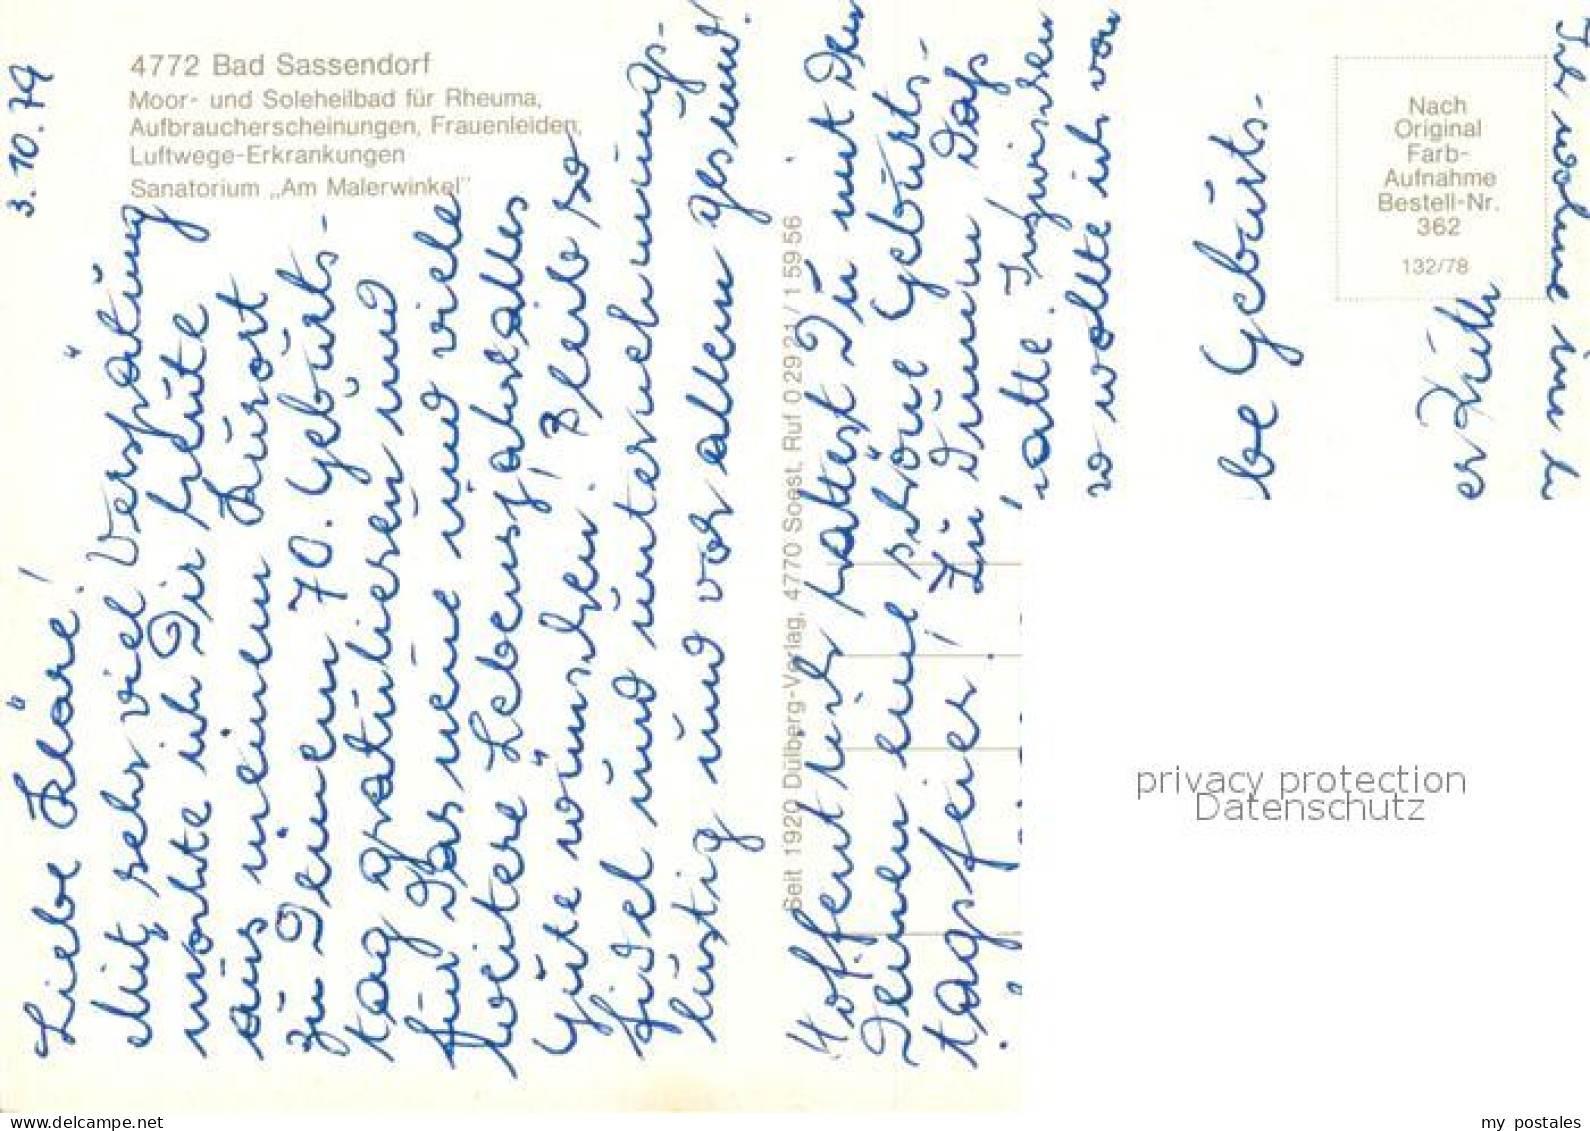 4772 Bad Sassendorf
Moor- und Soleheilbad für Rheuma,
Aufbraucherscheinungen, Frauenleiden,
Luftwege-Erkrankungen
Sanatorium „Am Malerwinkel"
3.10.79
Liebe Kläre!
Mit sehr viel Verspätung
möchte ich Dir heute
aus meinem Kurort
zu Deinem 70. Geburts-
tag gratulieren und
für das neue und viele
weitere Lebensjahre alles
Gute wünschen! Bleib so
fidel und unternehmungs-
lustig und vor allem gesund!
Seit 1920 Dülberg-Verlag, 4770 Soest, Ruf 0 29 21 / 1 59 56
Hoffentlich hattest Du mit den
Deinen eine schöne Geburts-
tagsfeier! Zu dumm daß
atte. Inzwischen
wollte ich von
be Geburts-
Ihr wohne im
Nach
Original
Farb-
Aufnahme
Bestell-Nr.
362
132/78
privacy protection
Datenschutz
my postales